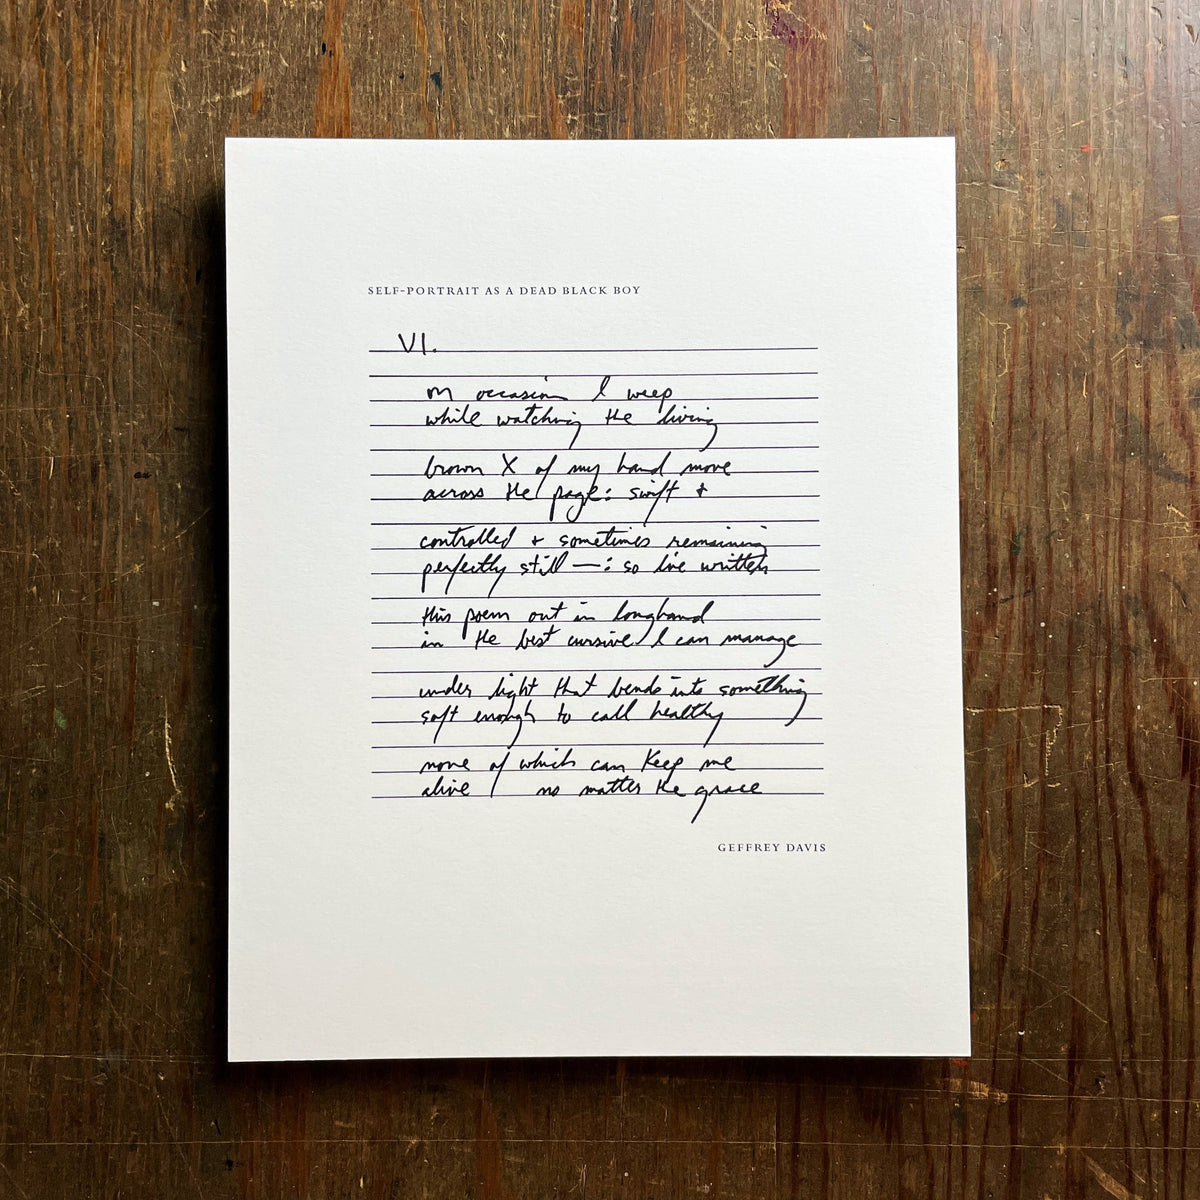 SELF-PORTRAIT AS A DEAD BLACK BOY
VI.
on occasion I weep
while watching the living
brown X of my hand move
across the page: swift +
controlled + sometimes remaining
perfectly still —: so I've written
this poem out in longhand
in the best cursive I can manage
under light that bends into something
soft enough to call healthy
none of which can keep me
alive / no matter the grace
GEFFREY DAVIS